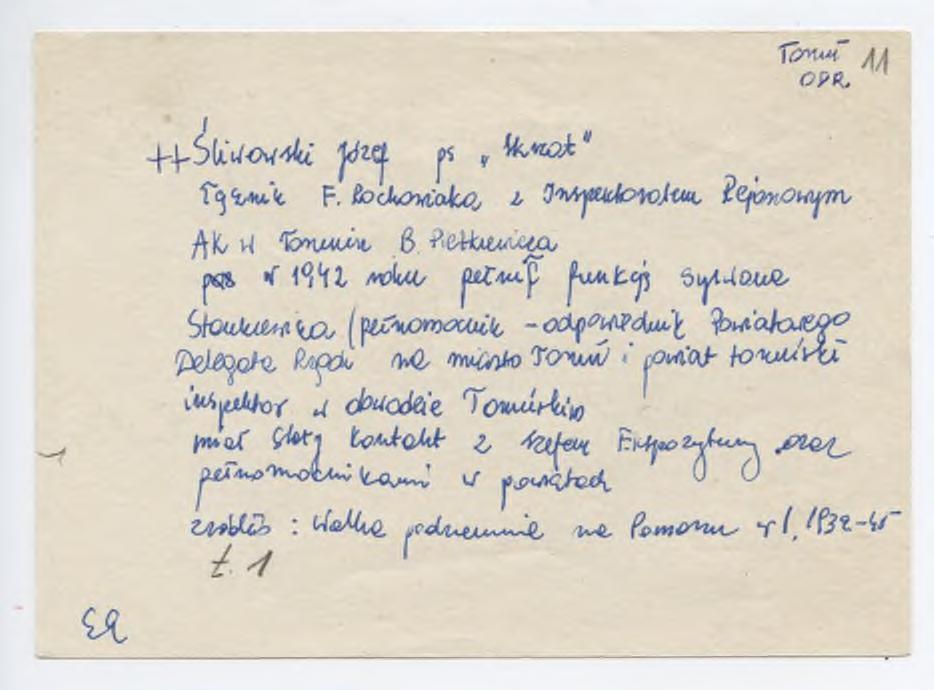 Toruń 11
ODR.
++ Śliwowski Józef ps „Skrzat"
Łącznik F. Rochowiaka z Inspektoratem Rejonowym
AK w Toruniu B. Pietkiewicza
w 1942 roku pełnił funkcję
Stankiewicza (pełnomocnik - odpowiednik Powiatowego
Delegata Rządu na miasto Toruń i powiat toruński
inspektor w obwodzie Toruńskim
miał stały kontakt z szefem Ekspozytury oraz
pełnomocnikami w powiatach
źródło: Walka podziemna na Pomorzu w l. 1939-45
t. 1